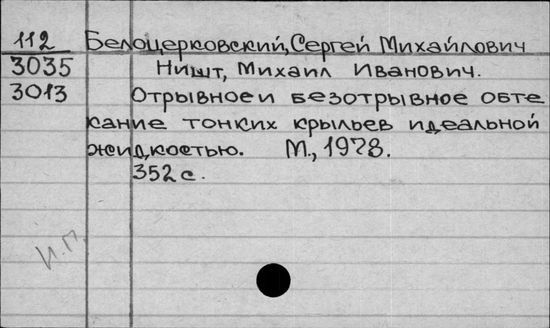 112 Белоцерковский, Сергей Михайлович
3035 Ништ, Михаил Иванович.
3013 Отрывное и безотрывное обте
кание тонких крыльев идеальной
жидкостью. М., 1978.
352 с.
И.П.